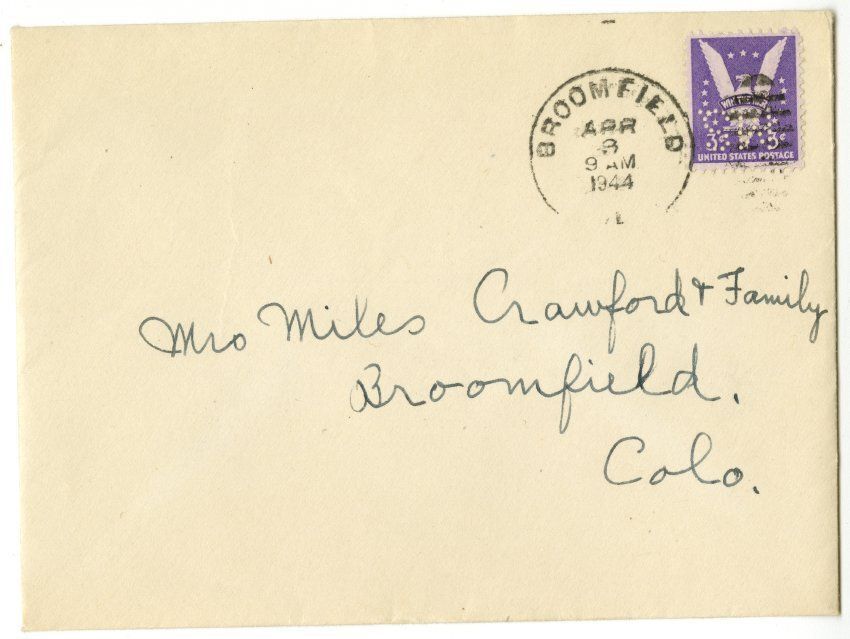 BROOMFIELD
APR
9 AM
1944
WIN THE WAR
3¢ 3¢
UNITED STATES POSTAGE
Mrs Miles Crawford & Family
Broomfield.
Colo.